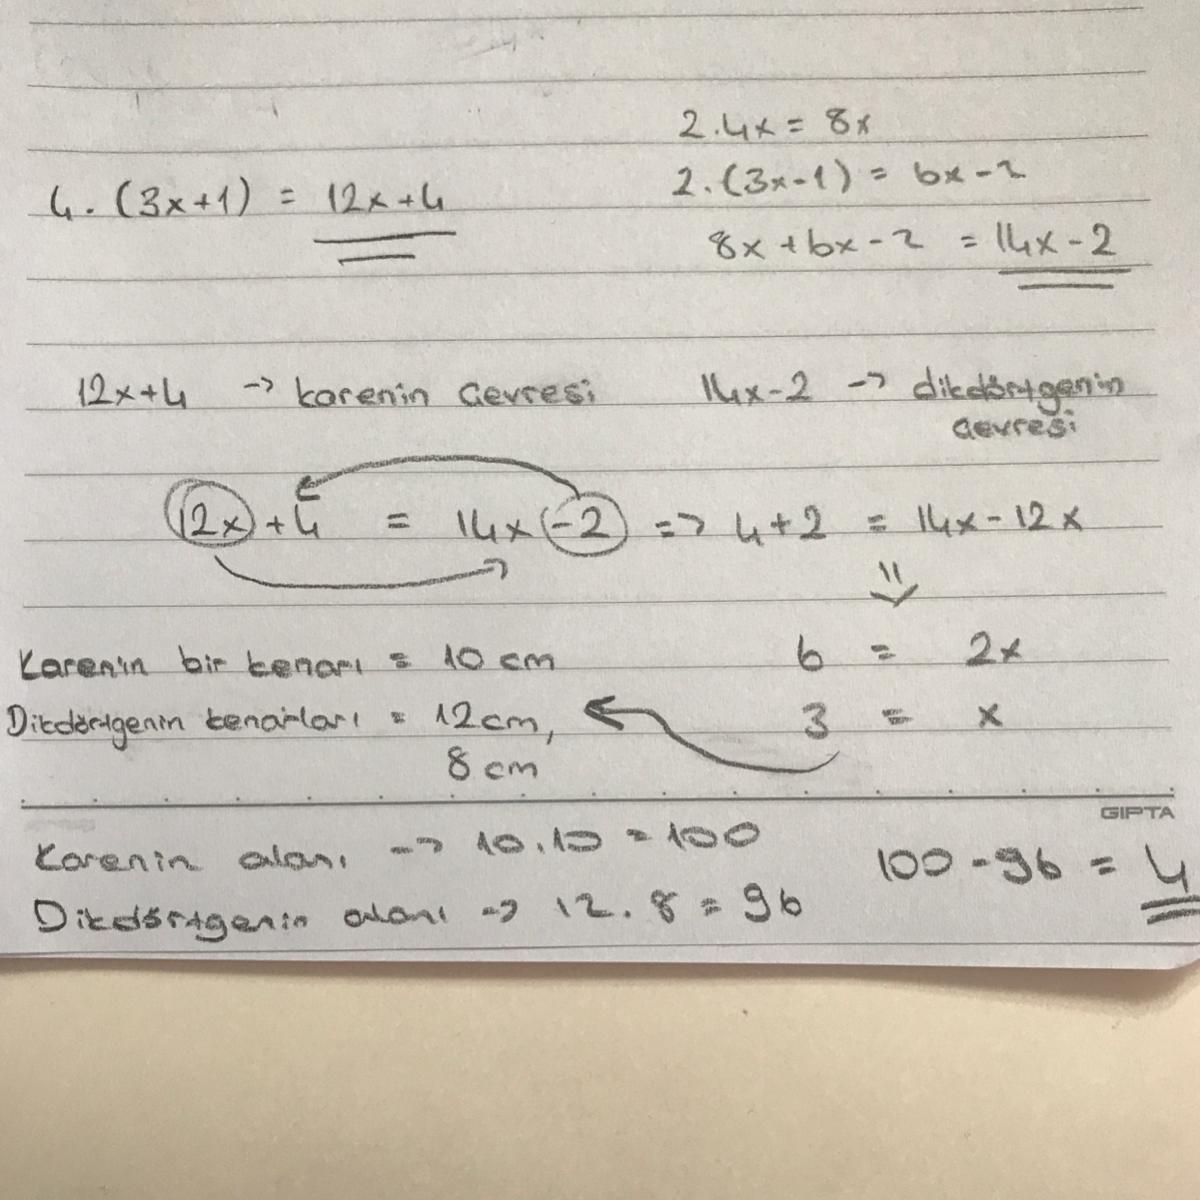 4. (3x+1) = 12x+4
2.4x = 8x
2.(3x-1) = 6x-2
8x+6x-2 = 14x-2
12x+4 -> karenin çevresi
14x-2 -> dikdörtgenin
çevresi
12x+4 = 14x-2 => 4+2 = 14x-12x
6 = 2x
3 = x
Karenin bir kenarı = 10 cm
Dikdörtgenin kenarları = 12cm,
8 cm
GIPTA
Karenin alanı -> 10.10 = 100
Dikdörtgenin alanı -> 12.8 = 96
100-96 = 4